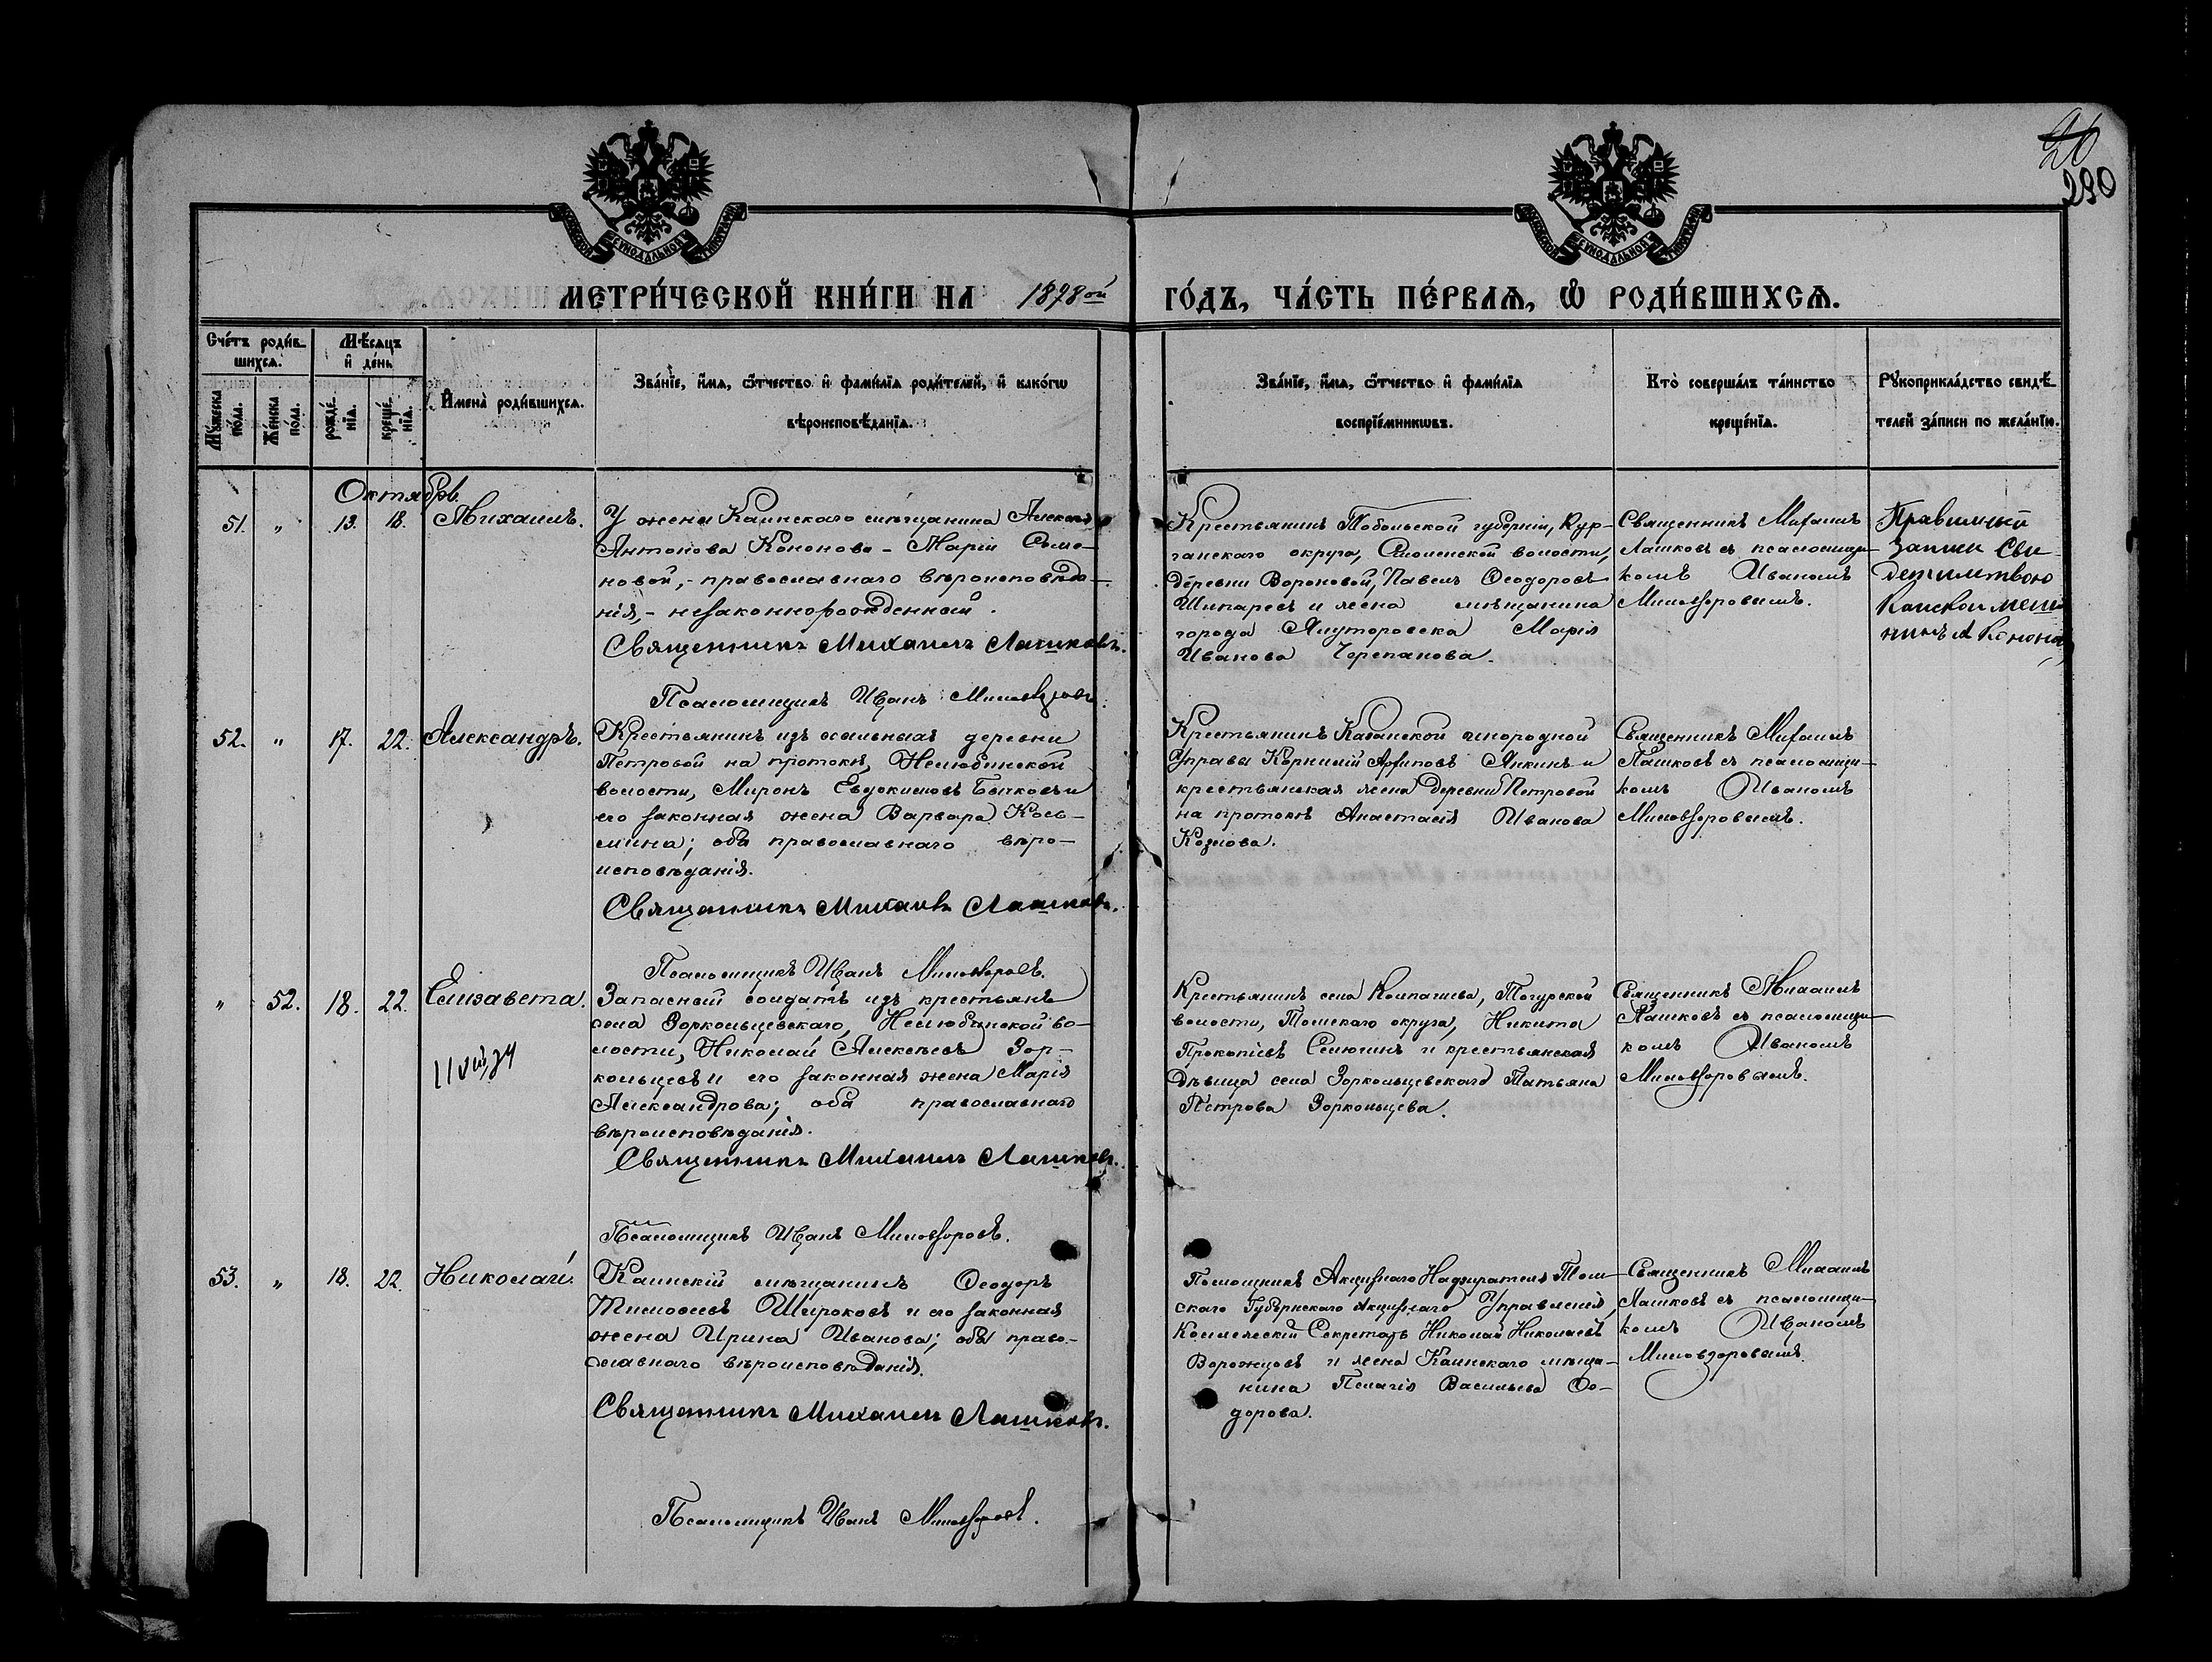 26
290
СѴНОДАЛЬНОЙ
СѴНОДАЛЬНОЙ
МЕТРИ́ЧЕСКОЙ КНИ́ГИ НА 1898ой ГО́ДЪ, ЧА́СТЬ ПЕ́РВАЯ, Ѡ РОДИ́ВШИХСЯ.
Сче́тъ роди́в-
шихся.
Му́жеска
по́ла.
Же́нска
по́ла.
Мѣ́сяцъ
и҆ де́нь
рожде́-
нїѧ.
креще́-
нїѧ.
И҆мена̀ роди́вшихся.
Зва́нїе, и҆́мя, ѻ҆́тчество и҆ фами́лїя роди́телей, и҆ како́гѡ
вѣроисповѣ́данїя.
Зва́нїе, и҆́мя, ѻ҆́тчество и҆ фами́лїя
воспрїе́мникѡвъ.
Кто̀ соверша́лъ та́инство
креще́нїя.
Рꙋкоприкла́дство свидѣ́-
телей за́писи по жела́нїю.
Октябрь.
51. " 13. 18. Михаилъ.
У жены Каинскаго мѣщанина Алексѣя
Антонова Кононова - Маріи Семе-
новой, - православнаго вѣроисповѣда-
нія, - незаконнорожденный.
Священникъ Михаилъ Лашковъ.
Псаломщикъ Иванъ Миловзоровъ.
Крестьянинъ Тобольской губерніи, Кур-
ганскаго округа, Смолинской волости,
деревни Вороновой, Павелъ Ѳеодоровъ
Шипаревъ и жена мѣщанина
города Ялуторовска Марія
Иванова Черепанова.
Священникъ Михаилъ
Лашковъ съ псаломщи-
комъ Иваномъ
Миловзоровымъ.
записи
52. " 17. 22. Александръ.
Крестьянинъ изъ ссыльныхъ деревни
Петровой на протокѣ, Нелюбинской
волости, Миронъ Евдокимовъ Бычковъ и
его законная жена Варвара Козь-
мина; оба православнаго вѣро-
исповѣданія.
Священникъ Михаилъ Лашковъ.
Псаломщикъ Иванъ Миловзоровъ.
Крестьянинъ Казанской инородной
Управы Корнилій Архиповъ Аккинъ и
крестьянская жена деревни Петровой
на протокѣ Анастасія Иванова
Козлова.
Священникъ Михаилъ
Лашковъ съ псаломщи-
комъ Иваномъ
Миловзоровымъ.
" 52. 18. 22. Елизавета.
Запасный солдатъ изъ крестьянъ
села Зоркольцевскаго, Нелюбинской во-
лости, Николай Алексѣевъ Зор-
кольцевъ и его законная жена Марія
Александрова; оба православнаго
вѣроисповѣданія.
Священникъ Михаилъ Лашковъ.
Псаломщикъ Иванъ Миловзоровъ.
Крестьянинъ села Колпашева, Тогурской
волости, Томскаго округа, Никита
Прокопіевъ Селюгинъ и крестьянская
дѣвица села Зоркольцевскаго Татьяна
Петрова Зоркольцева.
Священникъ Михаилъ
Лашковъ съ псаломщи-
комъ Иваномъ
Миловзоровымъ.
53. " 18. 22. Николай.
Каинскій мѣщанинъ Ѳеодоръ
Тимоѳеевъ Широковъ и его законная
жена Ирина Иванова; оба право-
славнаго вѣроисповѣданія.
Священникъ Михаилъ Лашковъ.
Псаломщикъ Иванъ Миловзоровъ.
Помощникъ Акцизнаго Надзирателя Том-
скаго Губернскаго Акцизнаго Управленія,
Коллежскій Секретарь Николай Николаевъ
Ворожцовъ и жена Каинскаго мѣща-
нина Пелагія Васильева Ѳо-
дорова.
Священникъ Михаилъ
Лашковъ съ псаломщи-
комъ Иваномъ
Миловзоровымъ.